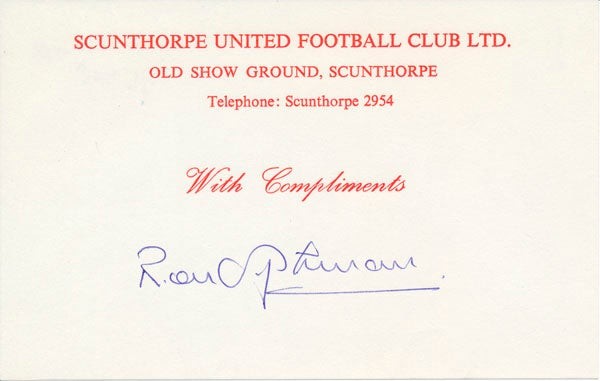 SCUNTHORPE UNITED FOOTBALL CLUB LTD.
OLD SHOW GROUND, SCUNTHORPE
Telephone: Scunthorpe 2954
With Compliments